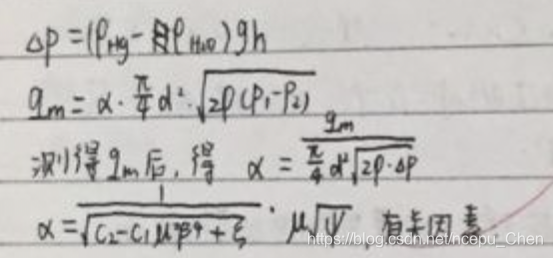 Δp = (ρHg - ρH₂O) gh
qm = α · π/4 d² · √2ρ(P₁-P₂)
测得 qm 后, 得 α = qm / (π/4 d² √2ρ·Δp)
α = 1 / √(C₂ - C₁μ²β⁴ + ξ) · μ√ψ 有关因素
https://blog.csdn.net/ncepu_Chen